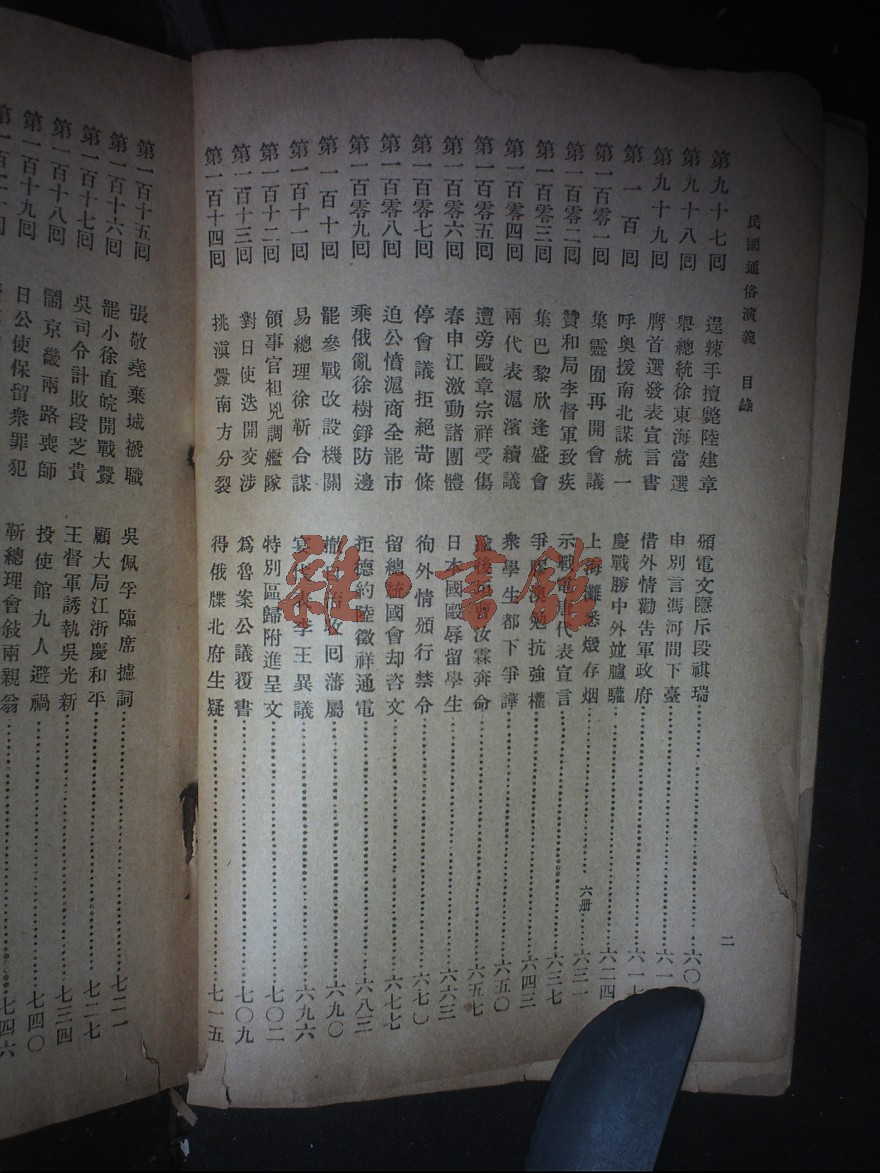 民國通俗演義 目錄
二
第九十七囘 逞辣手擅斃陸建章 頒電文隱斥段祺瑞 六〇
第九十八囘 舉總統徐東海當選 申別言馮河間下臺 六一
第九十九囘 膺首選發表宣言書 借外情勸告軍政府 六一七
第一百囘 呼奧援南北謀統一 慶戰勝中外竝臚驩 六二四
第一百零一囘 集靈囿再開會議 上海灘悉燬存烟 六册 六三一
第一百零二囘 贊和局李督軍致疾 示戰電唐代表宣言 六三七
第一百零三囘 集巴黎欣逢盛會 爭膠澳勉抗強權 六四三
第一百零四囘 兩代表滬濱續議 衆學生都下爭譁 六五〇
第一百零五囘 遭旁毆章宗祥受傷 逾後垣曹汝霖奔命 六五七
第一百零六囘 春申江激動諸團體 日本國毆辱留學生 六六三
第一百零七囘 停會議拒絕苛條 徇外情頒行禁令 六七〇
第一百零八囘 迫公憤滬商全罷市 留總統國會却咨文 六七七
第一百零九囘 乘俄亂徐樹錚防邊 拒德約陸徵祥通電 六八三
第一百十囘 罷參戰改設機關 撤自治收囘藩屬 六九〇
第一百十一囘 易總理徐靳合謀 宴代表李王異議 六九六
第一百十二囘 領事官袒兇調艦隊 特別區歸附進呈文 七〇二
第一百十三囘 對日使迭開交涉 爲魯案公議覆書 七〇九
第一百十四囘 挑滇釁南方分裂 得俄牒北府生疑 七一五
第一百十五囘 張敬堯棄城褫職 吳佩孚臨席攄詞 七二一
第一百十六囘 罷小徐直皖開戰釁 顧大局江浙慶和平 七二七
第一百十七囘 吳司令計敗段芝貴 王督軍誘執吳光新 七三四
第一百十八囘 鬧京畿兩路喪師 投使館九人避禍 七四〇
第一百十九囘 日公使保留衆罪犯 靳總理會敍兩親翁 七四六
雜·書館